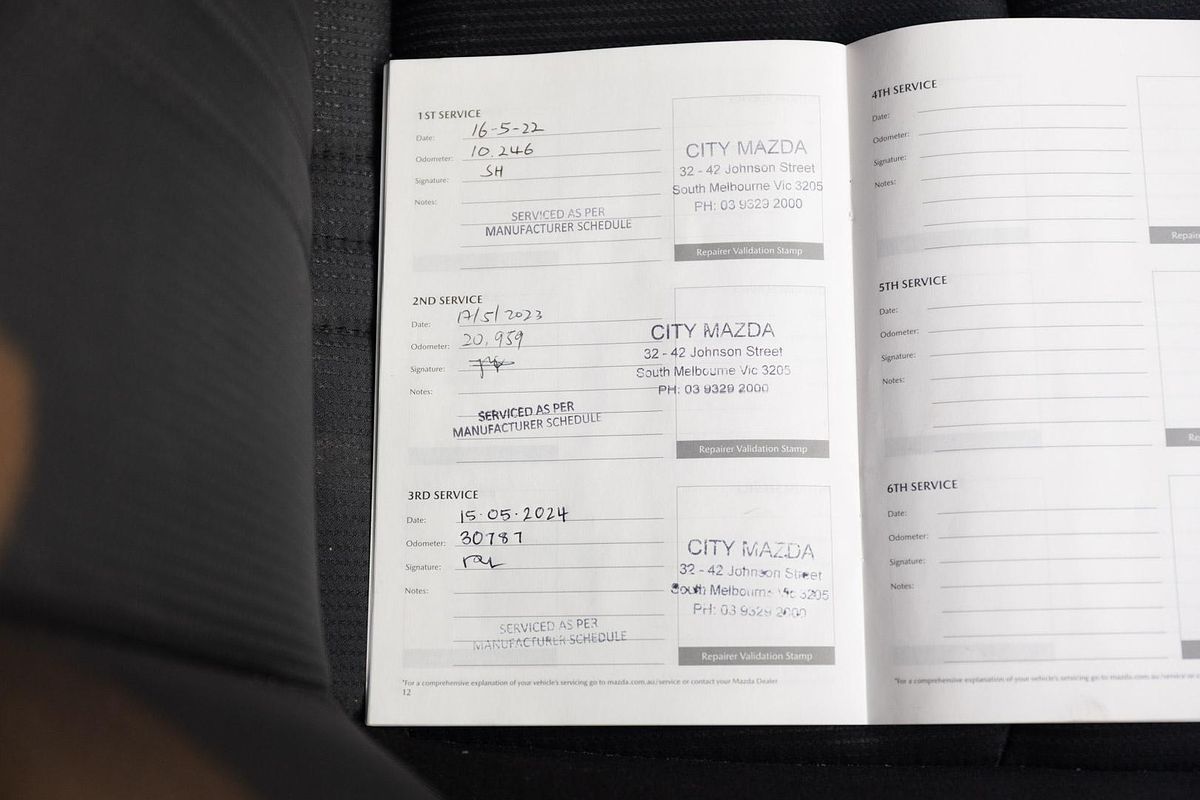 1ST SERVICE
Date: 16-5-22
Odometer: 10,246
Signature: SH
Notes:
SERVICED AS PER
MANUFACTURER SCHEDULE
CITY MAZDA
32 - 42 Johnson Street
South Melbourne Vic 3205
PH: 03 9329 2000
Repairer Validation Stamp
2ND SERVICE
Date: 17/5/2023
Odometer: 20,959
Signature:
Notes:
SERVICED AS PER
MANUFACTURER SCHEDULE
CITY MAZDA
32 - 42 Johnson Street
South Melbourne Vic 3205
PH: 03 9329 2000
Repairer Validation Stamp
3RD SERVICE
Date: 15.05.2024
Odometer: 30787
Signature:
Notes:
SERVICED AS PER
MANUFACTURER SCHEDULE
CITY MAZDA
32 - 42 Johnson Street
South Melbourne Vic 3205
PH: 03 9329 2000
Repairer Validation Stamp
*For a comprehensive explanation of your vehicle's servicing go to mazda.com.au/service or contact your Mazda Dealer
12
4TH SERVICE
Date:
Odometer:
Signature:
Notes:
Repair
5TH SERVICE
Date:
Odometer:
Signature:
Notes:
Re
6TH SERVICE
Date:
Odometer:
Signature:
Notes:
*For a comprehensive explanation of your vehicle's servicing go to mazda.com.au/service or